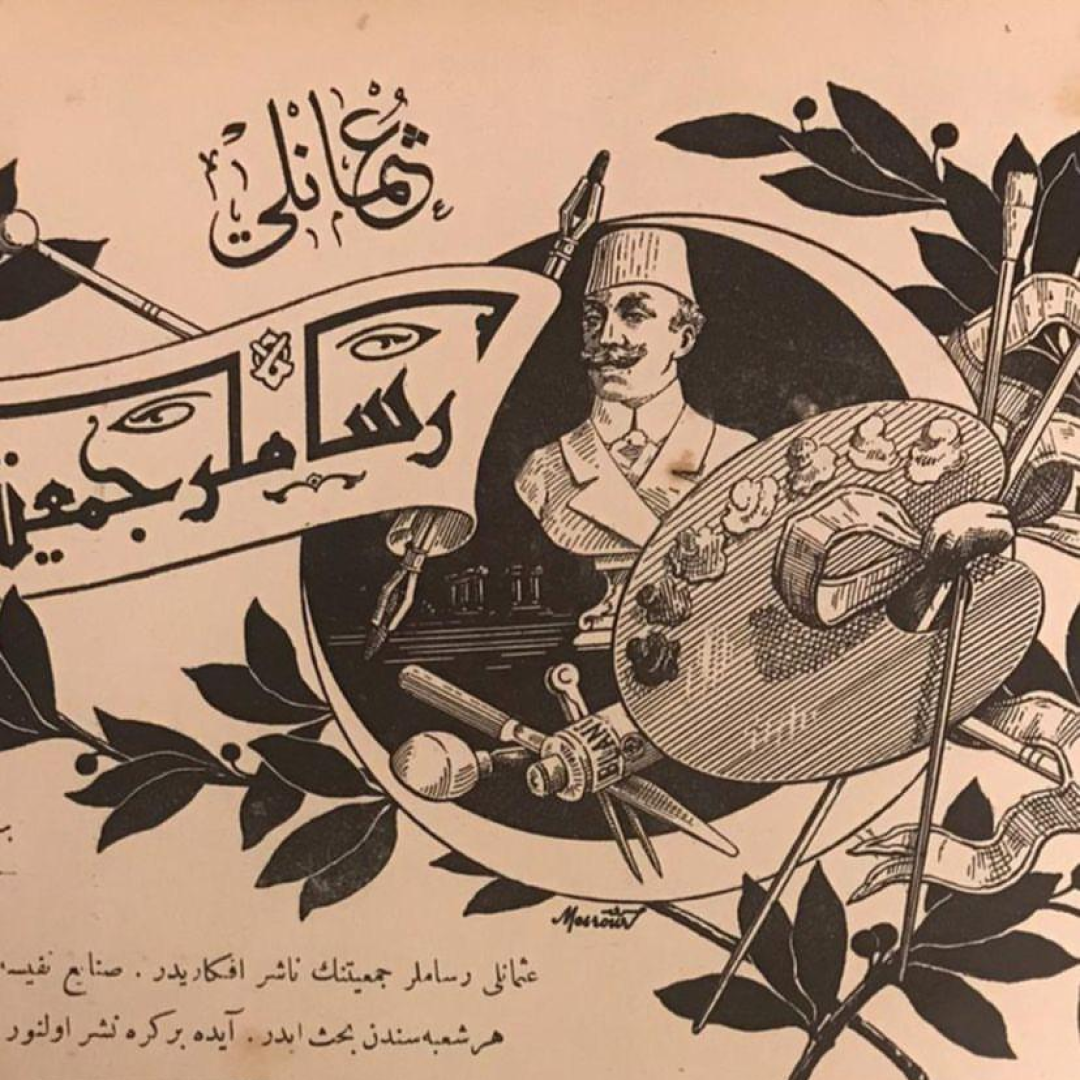 عثمانلی
رساملر جمعیتی
BLANC
Mesrour
عثمانلی رساملر جمعیتنك ناشر افکاریدر. صنایع نفیسه
هر شعبه‌سندن بحث ایدر. آیده بر کره نشر اولنور